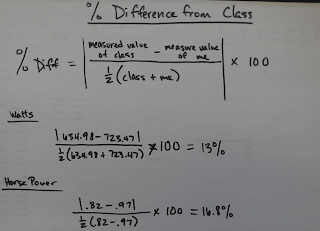 % Difference from Class
% Diff = | measured value of class - measure value of me / ½ (class + me) | × 100
Watts
|634.98 - 723.47| / ½ (634.98 + 723.47) × 100 = 13%
Horse Power
|.82 - .97| / ½ (.82 - .97) × 100 = 16.8%